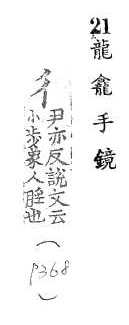 21龍龕手鏡
彳
尹亦反說文云
小步象人脛也
（p368）